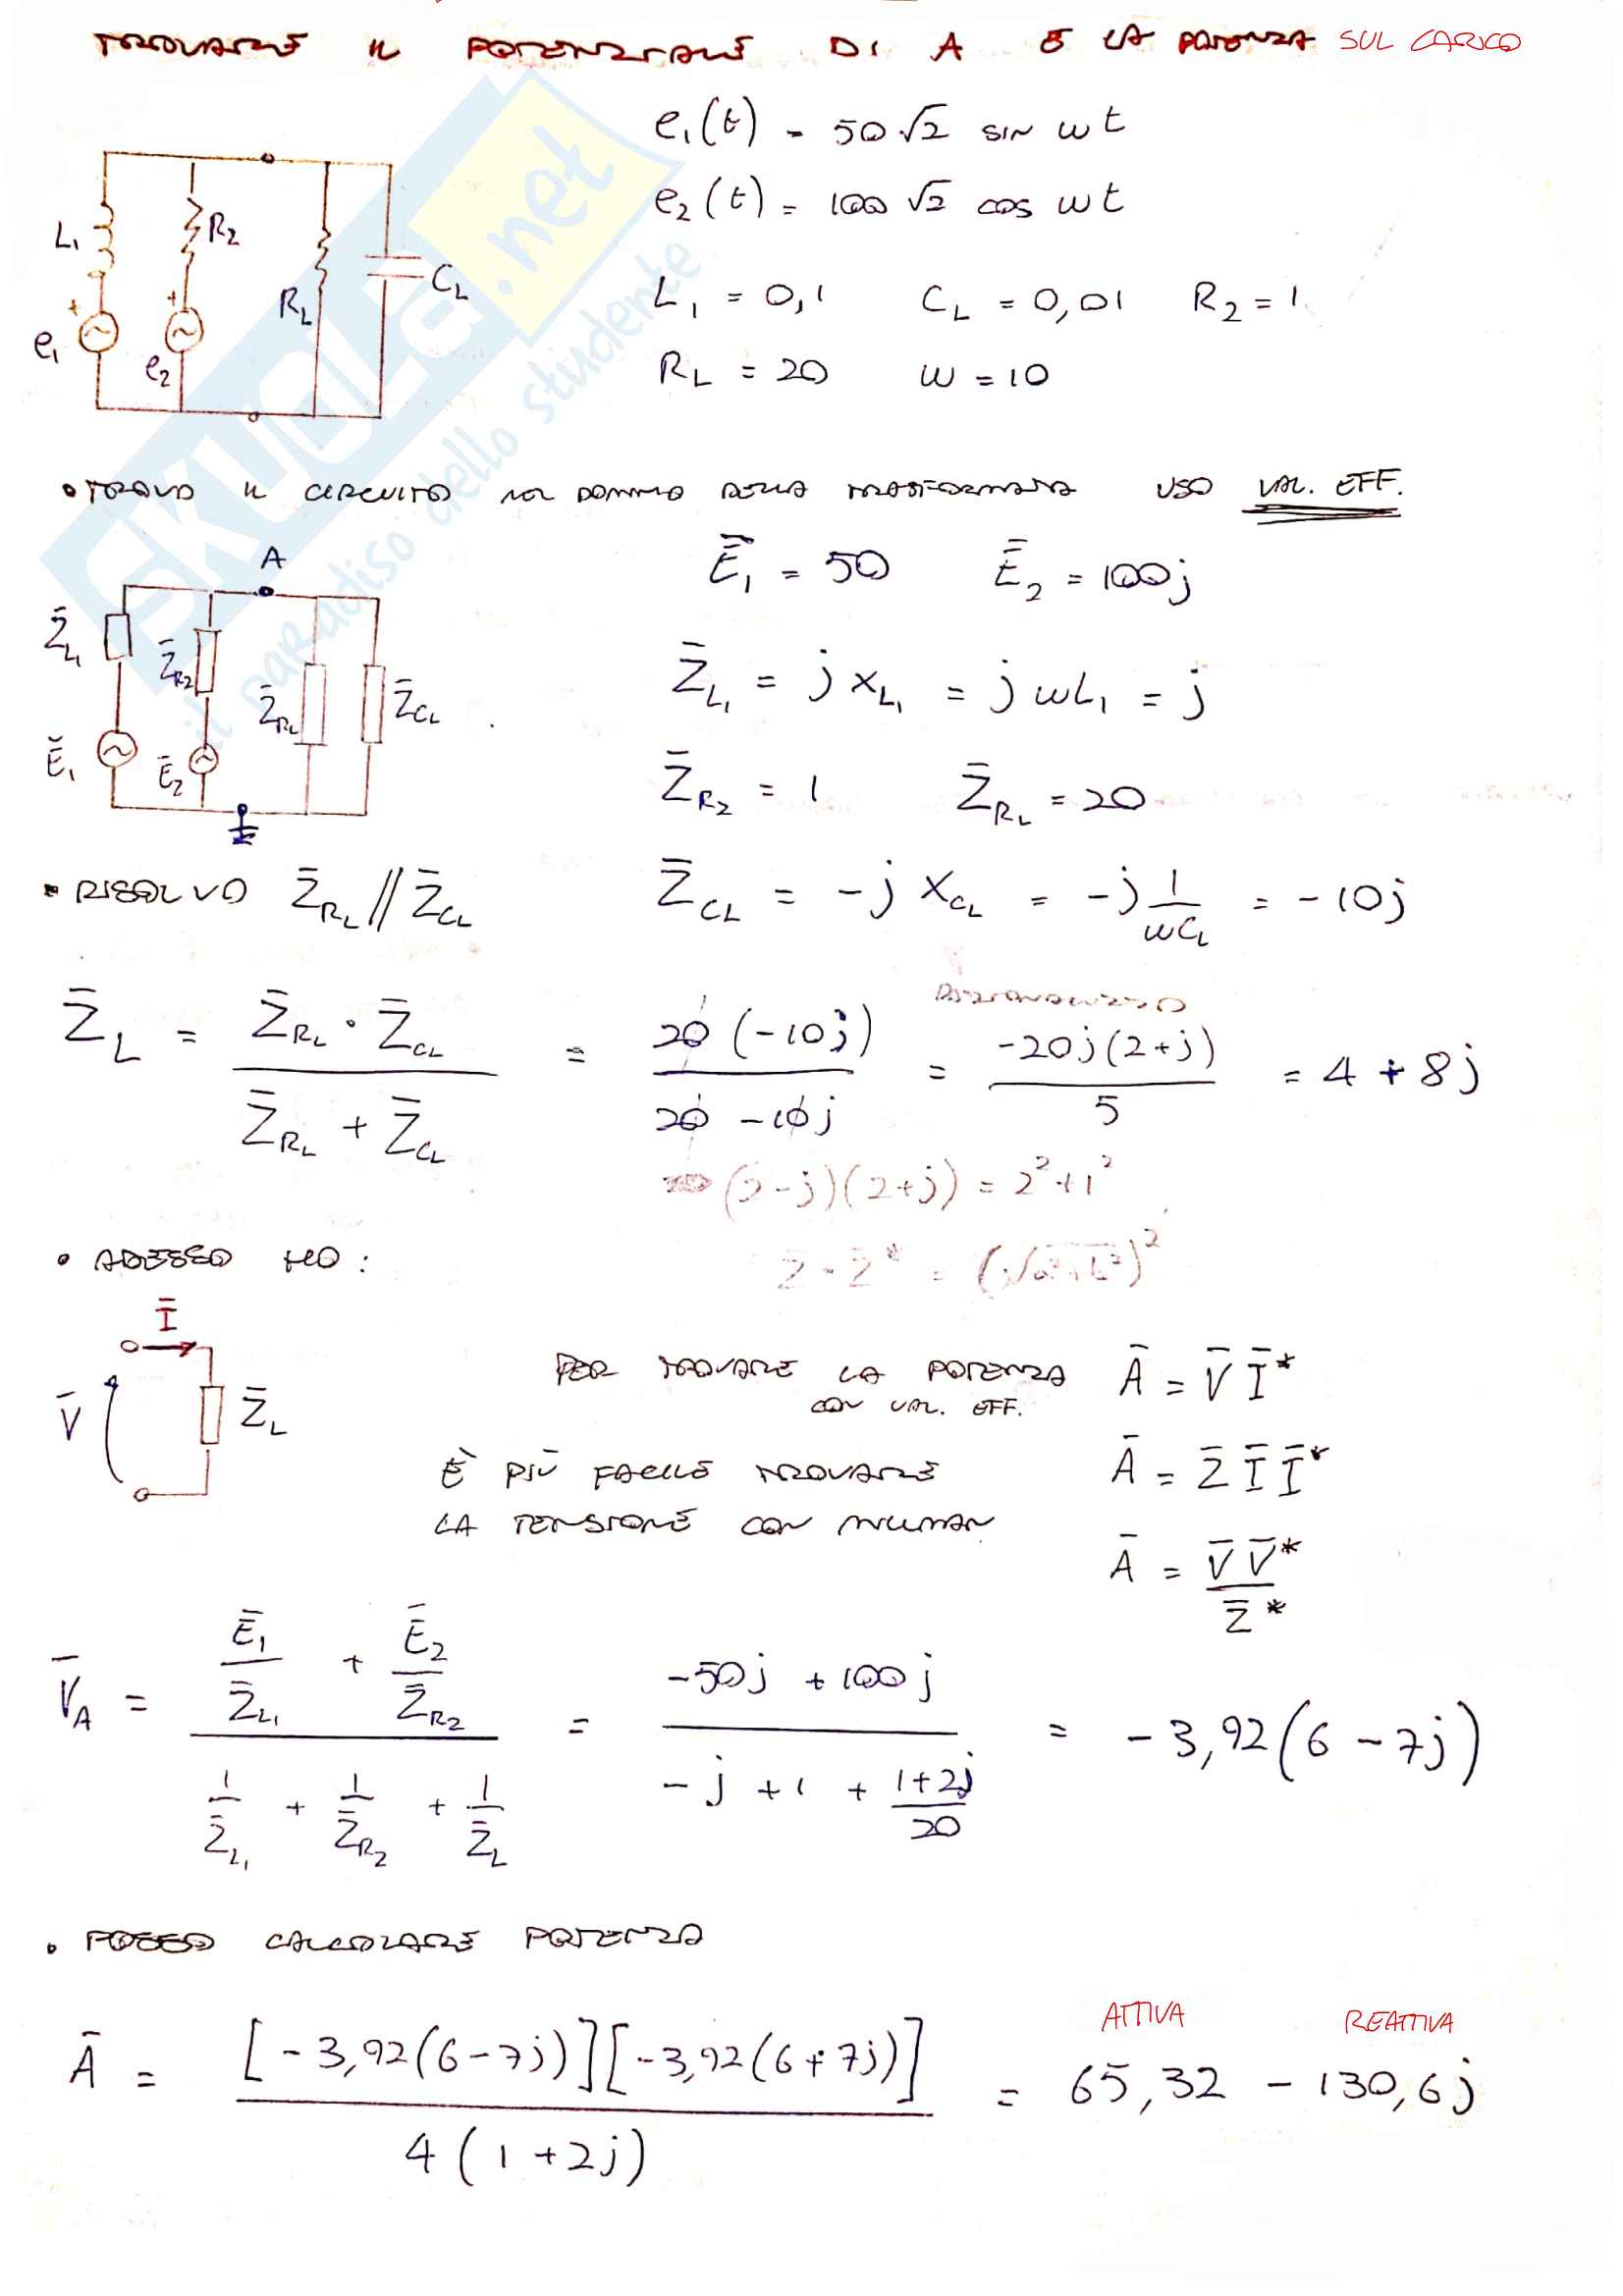 TROVARE IL POTENZIALE DI A E LA POTENZA SUL CARICO
e₁(t) = 50√2 SIN ωt
e₂(t) = 100√2 cos ωt
L₁ R₂ R_L C_L
+ +
e₁ e₂
L₁ = 0,1 C_L = 0,01 R₂ = 1
R_L = 20 ω = 10
SKUOLA.net
il paradiso dello studente
• TROVO IL CIRCUITO NEL DOMINIO DELLA TRASFORMATA USO VAL. EFF.
Ē₁ = 50 Ē₂ = 100j
A
Z̄_L₁ Z̄_R2 Z̄_RL Z̄_CL
Ē₁ Ē₂
Z̄_L₁ = j x_L₁ = j ωL₁ = j
Z̄_R₂ = 1 Z̄_R_L = 20
• RISOLVO Z̄_R_L // Z̄_CL
Z̄_CL = -j x_CL = -j 1/ωC_L = -10j
RAZIONALIZZO
Z̄_L = Z̄_R_L · Z̄_CL / Z̄_R_L + Z̄_CL = 20 (-10j) / 20 - 10j = -20j(2+j) / 5 = 4 + 8j
(2-j)(2+j) = 2² + 1²
Z · Z* = (√a²+b²)²
• ADESSO HO:
Ī
V̄ Z̄_L
PER TROVARE LA POTENZA Ā = V̄ Ī*
CON VAL. EFF.
È PIÙ FACILE TROVARE Ā = Z̄ Ī Ī*
LA TENSIONE CON MILLMAN
Ā = V̄ V̄* / Z̄*
V̄_A = Ē₁/Z̄_L₁ + Ē₂/Z̄_R2 / 1/Z̄_L₁ + 1/Z̄_R₂ + 1/Z̄_L = -50j + 100j / -j + 1 + 1+2j/20 = -3,92(6 - 7j)
• POSSO CALCOLARE POTENZA
ATTIVA REATTIVA
Ā = [-3,92(6-7j)][-3,92(6+7j)] / 4(1+2j) = 65,32 - 130,6j